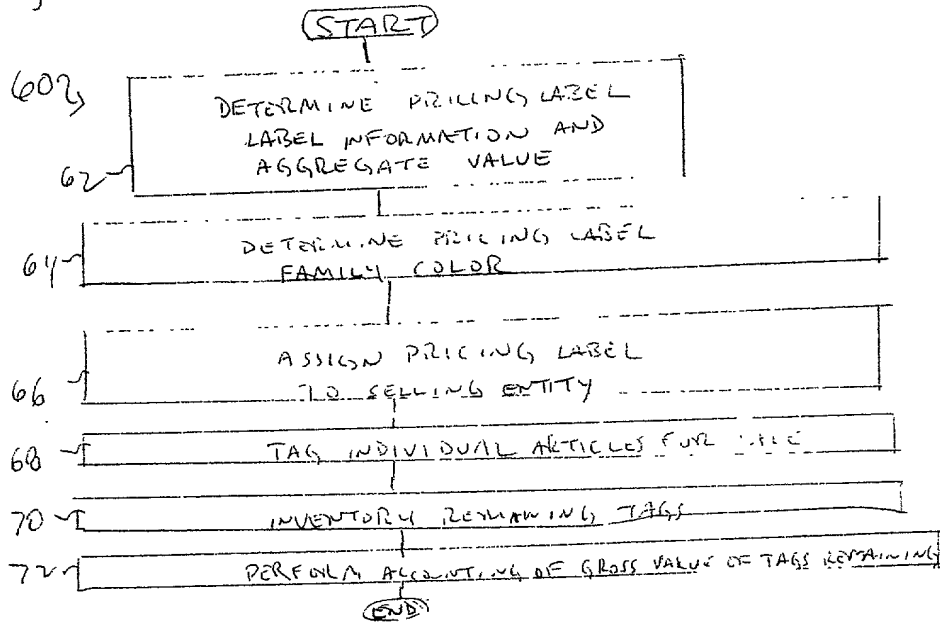 START
602
DETERMINE PRICING LABEL
LABEL INFORMATION AND
AGGREGATE VALUE
62
DETERMINE PRICING LABEL
FAMILY COLOR
64
ASSIGN PRICING LABEL
TO SELLING ENTITY
66
68 TAG INDIVIDUAL ARTICLES FOR
70 INVENTORY REMAINING TAGS
72 PERFORM ACCOUNTING OF GROSS VALUE OF TAGS REMAINING
END